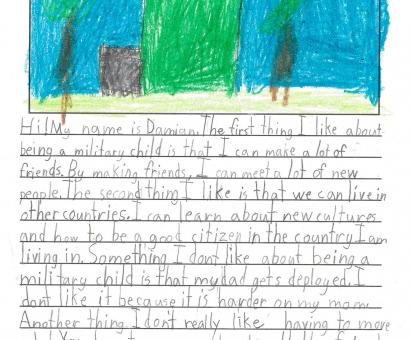 Hi! My name is Damian. The first thing I like about
being a military child is that I can make a lot of
friends. By making friends, I can meet a lot of new
people. The second thing I like is that we can live in
other countries. I can learn about new cultures
and how to be a good citizen in the country I am
living in. Something I dont like about being a
military child is that my dad gets deployed. I
dont like it because it is harder on my mom.
Another thing I don't really like having to move